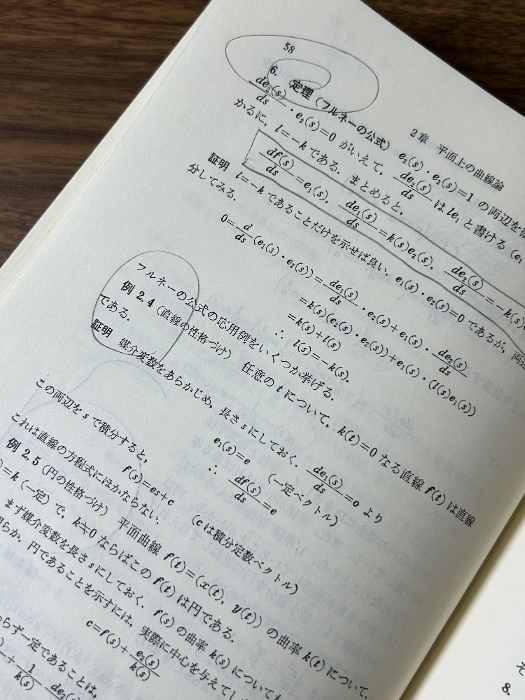 58
2章 平面上の曲線論
6. 定理(フルネーの公式) e₂(s)・e₂(s)=1 の両辺を
de₂(s)/ds・e₂(s)=0 がいえて, de₂(s)/ds は le₁ と書ける (e₁
かるに, l=-k である. まとめると,
df(s)/ds=e₁(s), de₁(s)/ds=k(s)e₂(s), de₂(s)/ds=-k(s)
証明 l=-k であることだけを示せば良い. e₁(s)・e₂(s)=0 であるが, 両辺
分してみる.
0=d/ds(e₁(s)・e₂(s))=de₁(s)/ds・e₂(s)+e₁(s)・de₂(s)/ds
=k(s)(e₂(s)・e₂(s))+e₁(s)・(l(s)e₁(s))
=k(s)+l(s)
∴ l(s)=-k(s).
フルネーの公式の応用例をいくつか挙げる.
例 2.4 (直線の性格づけ) 任意の t について, k(t)=0 なる直線 f(t) は直線
である.
証明 媒介変数をあらかじめ, 長さ s にしておく. de₁(s)/ds=0 より
e₁(s)=e (一定ベクトル)
∴ df(s)/ds=e
この両辺を s で積分すると,
f(s)=es+c (c は積分定数ベクトル)
これは直線の方程式にほかならない.
例 2.5 (円の性格づけ) 平面曲線 f(t)=(x(t), y(t)) の曲率 k(t) について,
)=k (一定) で, k≠0 ならばこの f(t) は円である.
まず媒介変数を長さ s にしておく. f(s) の曲率 k(s) についても
らか. 円であることを示すには, 実際に中心を与えてし
c=f(s)+e₂(s)/k(s)
らず一定であることは,
8.